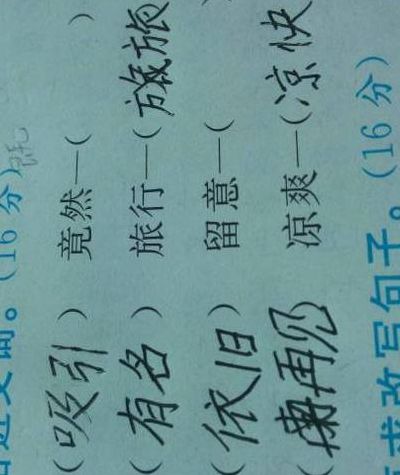 近义词。(16分)
(吸引) 竟然—( )
(有名) 旅行—(
(依旧) 留意—(
再见 凉爽—(凉快
求改写句子。(16分)